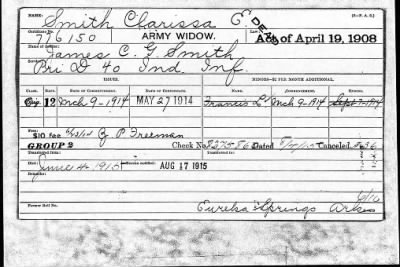 NAME: Smith Clarissa E. DEAD (3-P.A.G.)
Certificate No. 776150 ARMY WIDOW. Law Act of April 19, 1908
Name of Soldier: James C. G. Smith
Pri D 40 Ind. Inf.
ISSUE. MINORS—$2 PER MONTH ADDITIONAL.
CLASS. RATE. DATE OF COMMENCEMENT. DATE OF CERTIFICATE. NAME. COMMENCEMENT. ENDING.
Orig 12 Mch 9-1914 MAY 27 1914 Francis L. Mch 9-1914 Sept 7-1914
$10 fee Z. P. Freeman
GROUP 2 Check No. 8275863 Dated Canceled
Died: June 4, 1915 AUG 17 1915
Remarks:
Former Roll No. Eureka Springs Ark